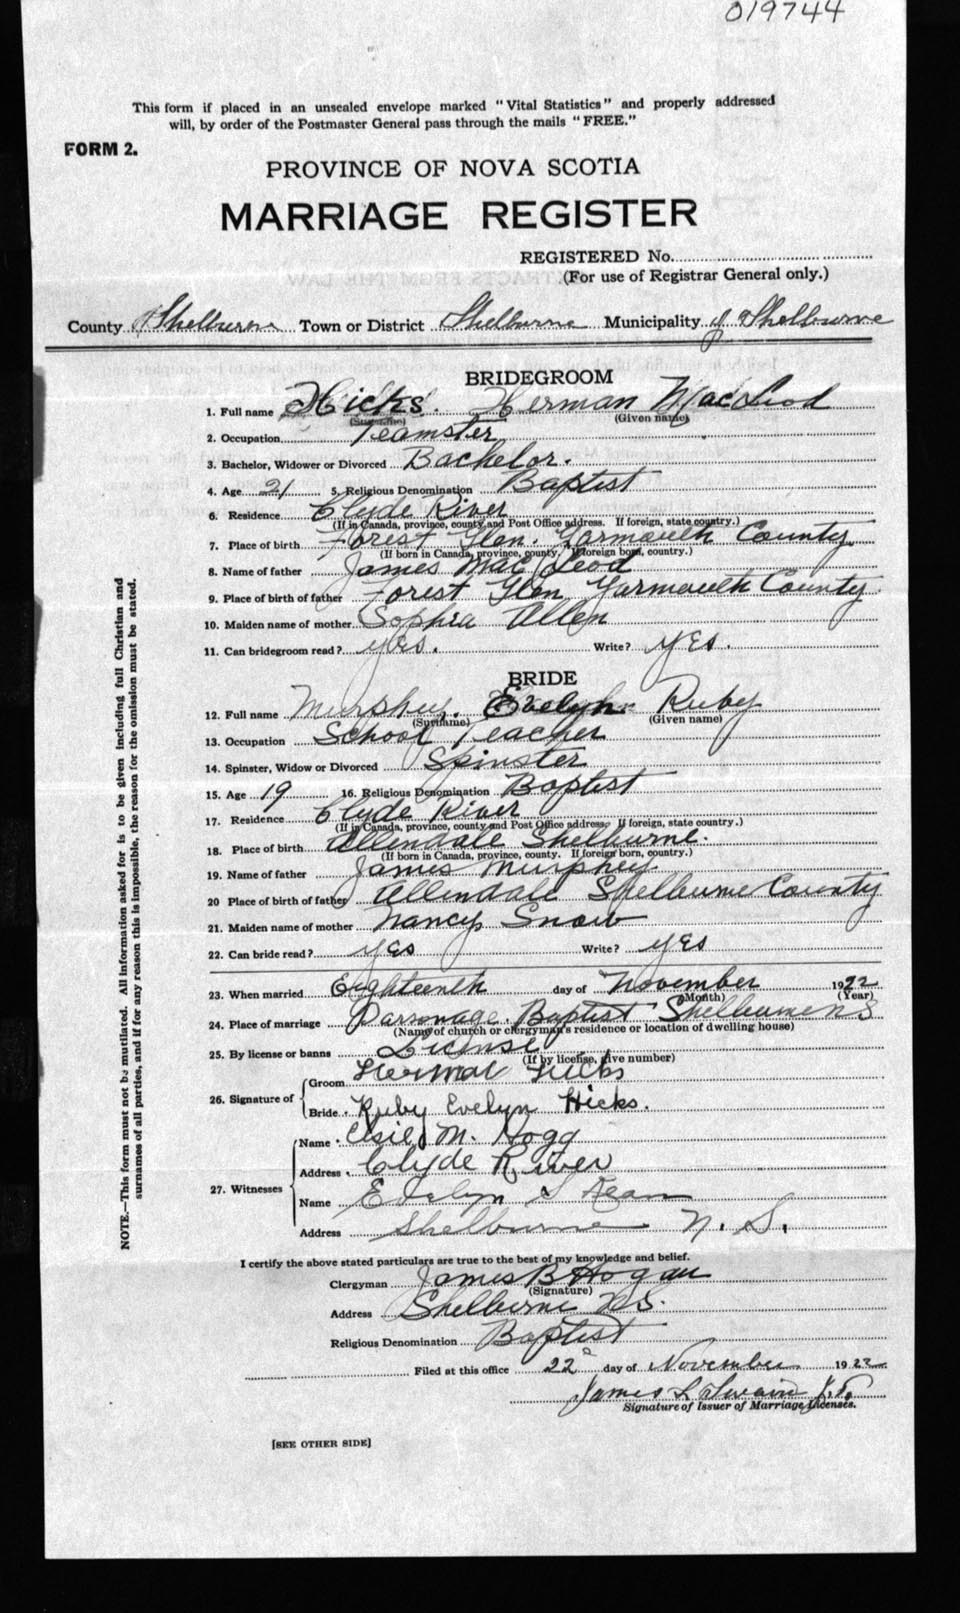 019744
This form if placed in an unsealed envelope marked "Vital Statistics" and properly addressed
will, by order of the Postmaster General pass through the mails "FREE."
FORM 2.
PROVINCE OF NOVA SCOTIA
MARRIAGE REGISTER
REGISTERED No.
(For use of Registrar General only.)
County Shelburne Town or District Shelburne Municipality of Shelburne
BRIDEGROOM
1. Full name Hicks. Herman MacLeod
(Surname) (Given name)
2. Occupation Teamster
3. Bachelor, Widower or Divorced Bachelor.
4. Age 21 5. Religious Denomination Baptist
6. Residence Clyde River
(If in Canada, province, county and Post Office address. If foreign, state country.)
7. Place of birth Forest Glen. Yarmouth County
(If born in Canada, province, county. If foreign born, country.)
8. Name of father James Mac Leod
9. Place of birth of father Forest Glen Yarmouth County.
10. Maiden name of mother Sophia Allen
11. Can bridegroom read? yes. Write? yes.
BRIDE
12. Full name Murphey. Evelyn Ruby
(Surname) (Given name)
13. Occupation School Teacher
14. Spinster, Widow or Divorced Spinster
15. Age 19 16. Religious Denomination Baptist
17. Residence Clyde River
(If in Canada, province, county and Post Office address. If foreign, state country.)
18. Place of birth Allendale Shelburne.
(If born in Canada, province, county. If foreign born, country.)
19. Name of father James Murphey
20 Place of birth of father Allendale Shelburne County
21. Maiden name of mother Nancy Snow
22. Can bride read? yes Write? yes
23. When married Eighteenth day of November 1922
(Month) (Year)
24. Place of marriage Parsonage. Baptist Shelburne NS
(Name of church or clergyman's residence or location of dwelling house)
25. By license or banns License
(If by license, give number)
26. Signature of Groom Herman Hicks
Bride. Ruby Evelyn Hicks.
27. Witnesses Name Elsie M. Hogg
Address. Clyde River
Name Evelyn S Dean
Address Shelburne N. S.
I certify the above stated particulars are true to the best of my knowledge and belief.
Clergyman James B Hogan
(Signature)
Address Shelburne N.S.
Religious Denomination Baptist
Filed at this office 22 day of November 1922
James L Swain
Signature of Issuer of Marriage Licenses.
[SEE OTHER SIDE]
NOTE.—This form must not be mutilated. All information asked for is to be given including full Christian and
surnames of all parties, and if for any reason this is impossible, the reason for the omission must be stated.